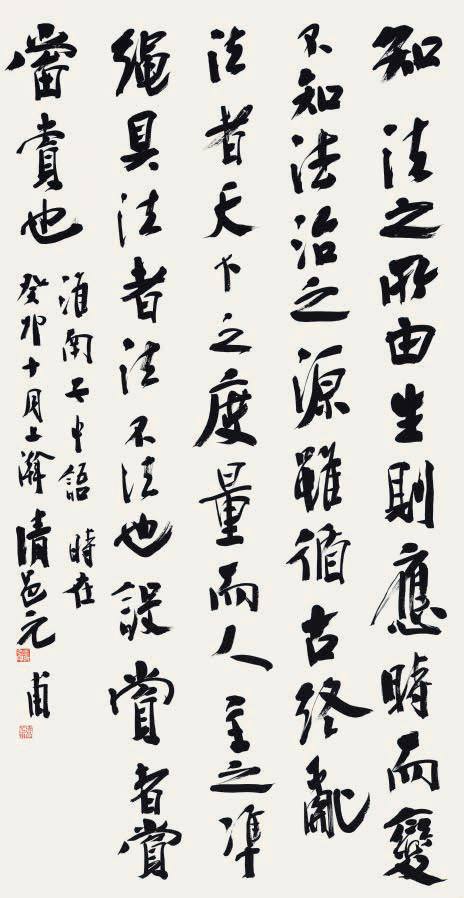 知法之所由生則應時而變
不知法治之源雖循古終亂
法者天下之度量而人主之準
繩具法者法不法也設賞者賞
當賞也
淮南子中語 時在
癸卯十月上澣 清邑元甫